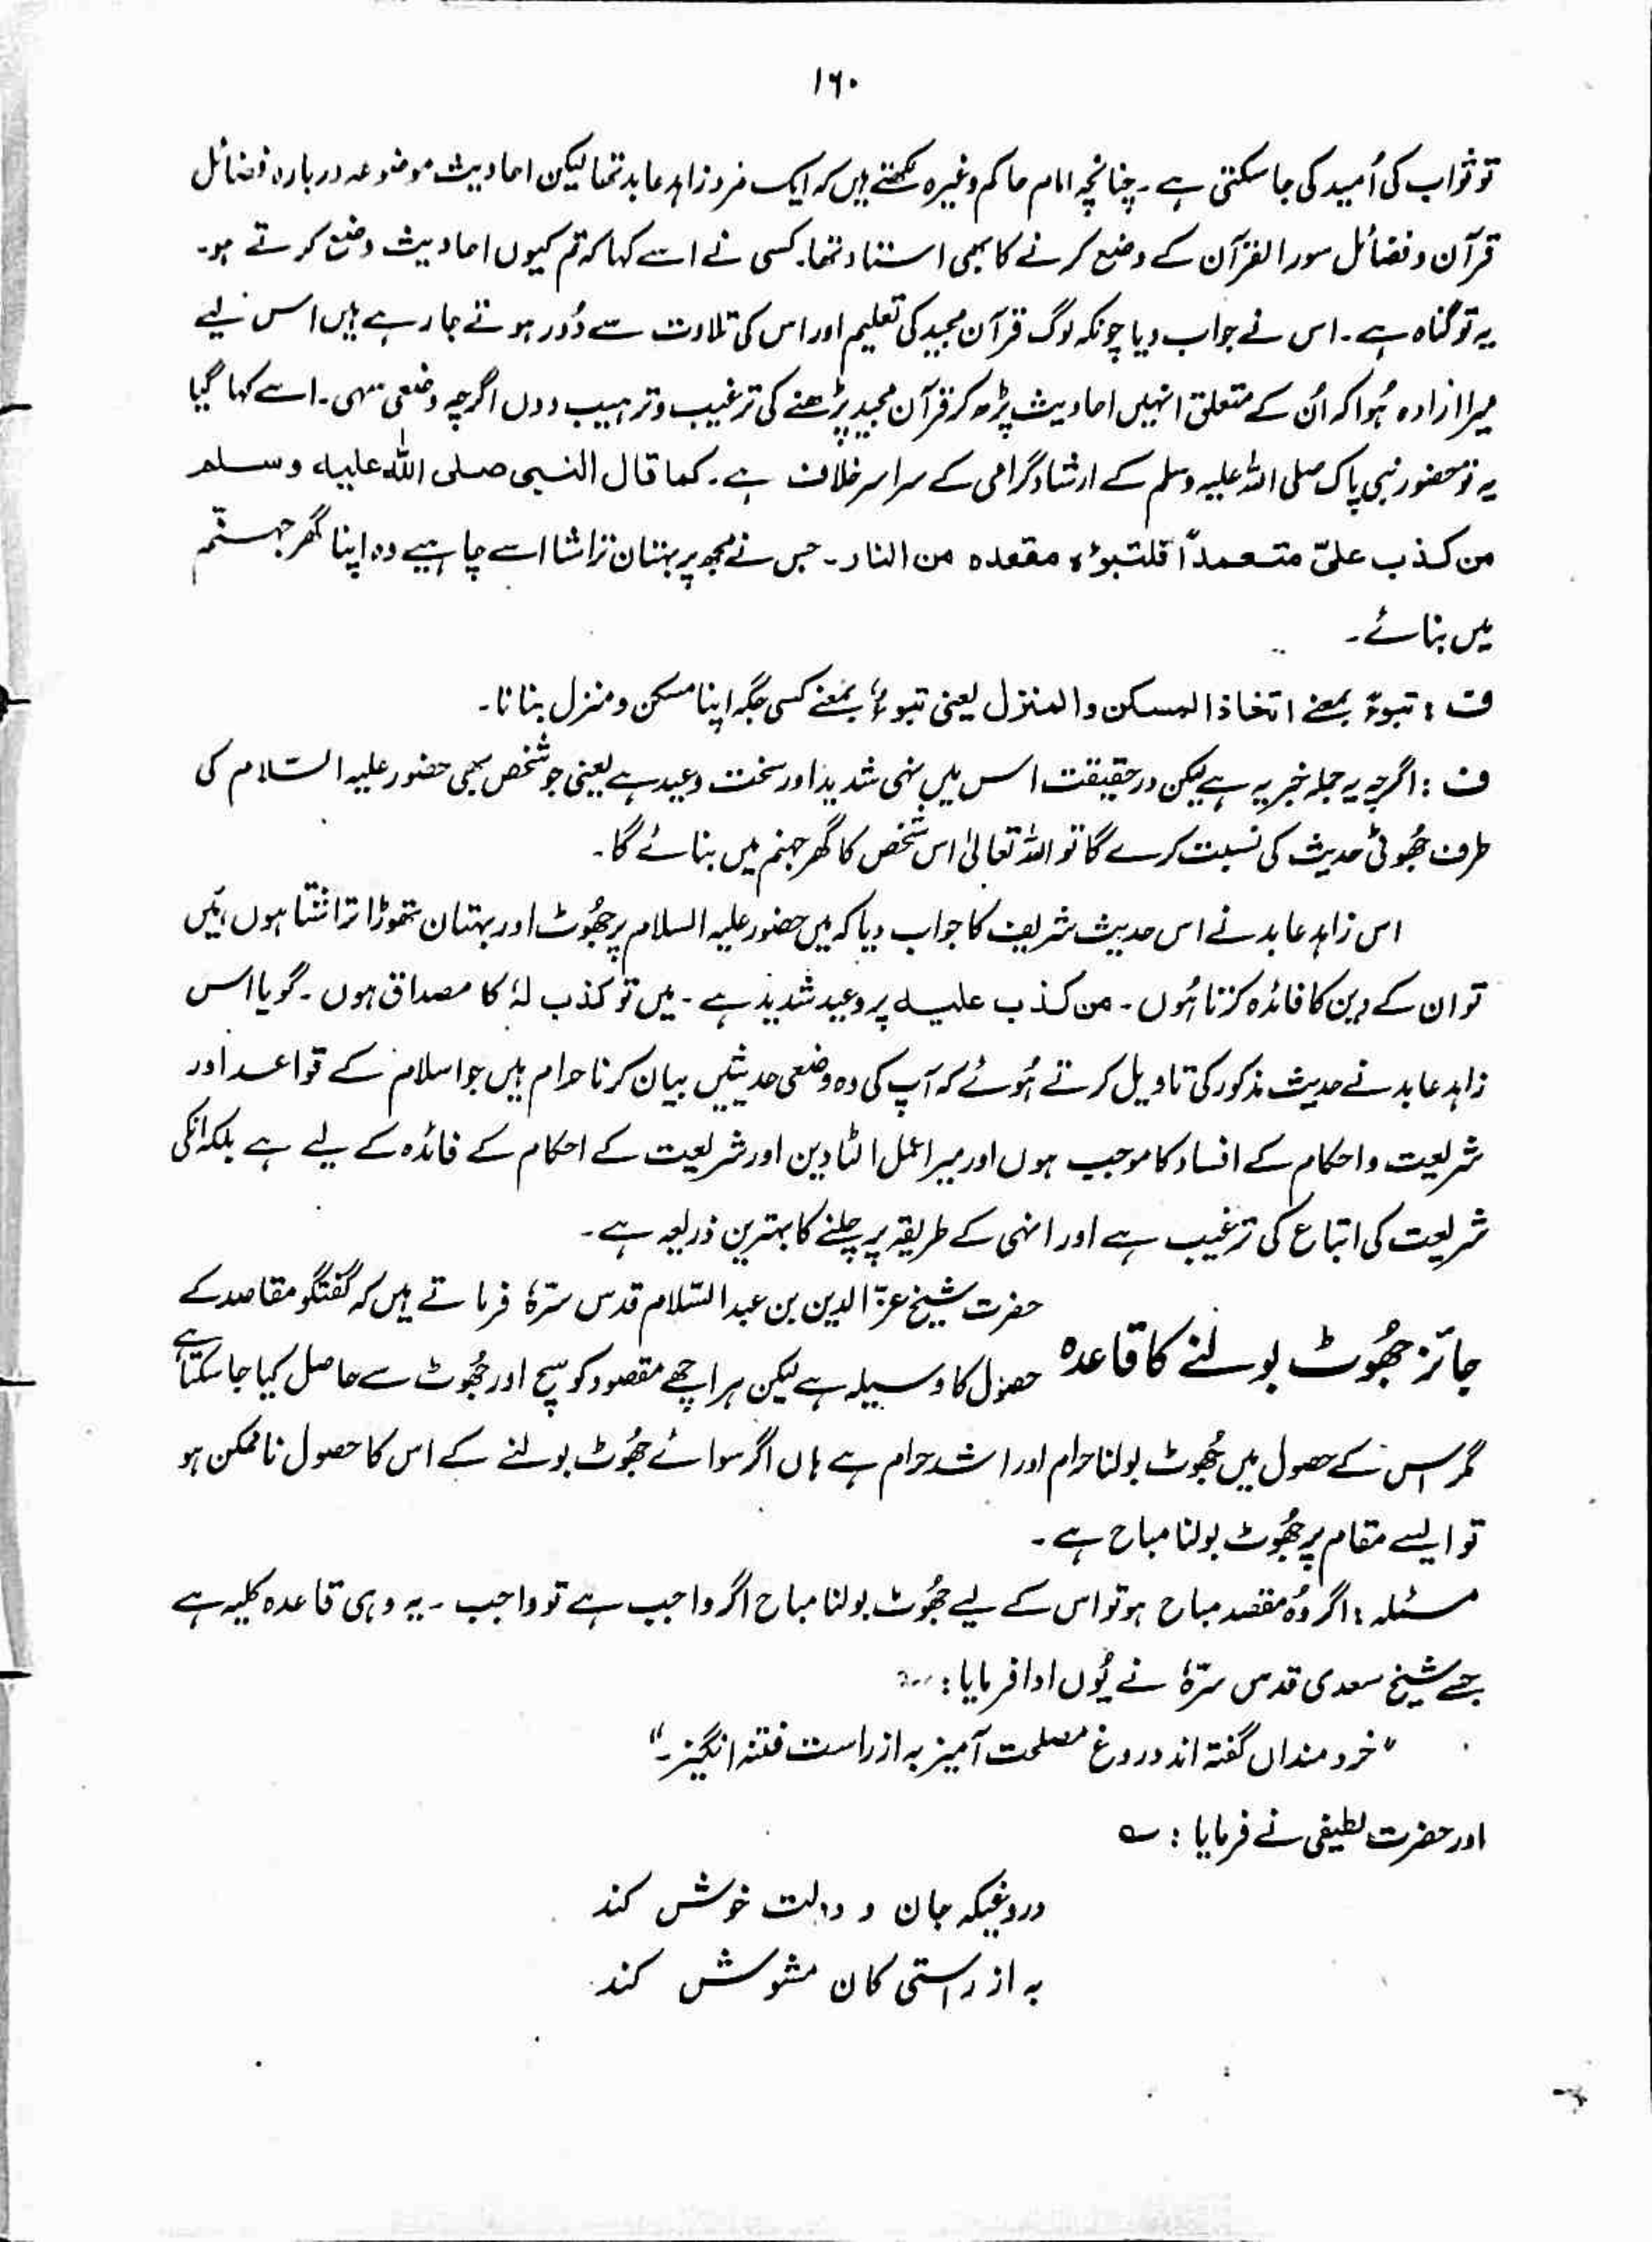 ۱۶۰
تو ثواب کی اُمید کی جا سکتی ہے۔ چنانچہ امام حاکم وغیرہ لکھتے ہیں کہ ایک مرد زاہد عابد تھا لیکن احادیث موضوعہ دربارہ فضائل
قرآن و فضائل سور القرآن کے وضع کرنے کا بھی استاد تھا۔ کسی نے اسے کہا کہ تم کیوں احادیث وضع کرتے ہو۔
یہ تو گناہ ہے۔ اس نے جواب دیا چونکہ لوگ قرآن مجید کی تعلیم اور اس کی تلاوت سے دُور ہوتے جا رہے ہیں اس لیے
میرا ارادہ ہُوا کہ اُن کے متعلق انہیں احادیث پڑھ کر قرآن مجید پڑھنے کی ترغیب و ترہیب دوں اگرچہ وضعی سہی۔ اسے کہا گیا
یہ تو حضور نبی پاک صلی اللہ علیہ وسلم کے ارشاد گرامی کے سراسر خلاف ہے۔ کما قال النبی صلی اللہ علیہ وسلم
من کذب علیّ متعمداً فلتبوؤ مقعدہ من النار۔ جس نے مجھ پر بہتان تراشا اسے چاہیے وہ اپنا گھر جہنّم
میں بنائے۔
ف : تبوءٌ بمعنے اتخاذ المسکن والمنزل یعنی تبوءٌ بمعنے کسی جگہ اپنا مسکن و منزل بنانا۔
ف : اگرچہ یہ جملہ خبریہ ہے لیکن درحقیقت اس میں نہی شدید اور سخت وعید ہے یعنی جو شخص بھی حضور علیہ السّلام کی
طرف جھُوٹی حدیث کی نسبت کرے گا تو اللہ تعالیٰ اس شخص کا گھر جہنم میں بنائے گا۔
اس زاہد عابد نے اس حدیث شریف کا جواب دیا کہ میں حضور علیہ السلام پر جھُوٹ اور بہتان تھوڑا تراشتا ہوں، میَں
تو ان کے دین کا فائدہ کرتا ہُوں۔ من کذب علیہ پر وعید شدید ہے۔ میں تو کذب لہٗ کا مصداق ہوں۔ گویا اس
زاہد عابد نے حدیث مذکور کی تاویل کرتے ہُوئے کہ آپ کی وہ وضعی حدیثیں بیان کرنا حرام ہیں جو اسلام کے قواعد اور
شریعت و احکام کے افساد کا موجب ہوں اور میرا عمل الٹا دین اور شریعت کے احکام کے فائدہ کے لیے ہے بلکہ انکی
شریعت کی اتباع کی ترغیب ہے اور انہی کے طریقہ پر چلنے کا بہترین ذریعہ ہے۔
جائز جھُوٹ بولنے کا قاعدہ
حضرت شیخ عزّالدین بن عبدالسّلام قدس سرّہٗ فرماتے ہیں کہ گفتگو مقاصد کے
حصول کا وسیلہ ہے لیکن ہر اچھے مقصود کو سچ اور جھُوٹ سے حاصل کیا جا سکتا ہے
مگر اس کے حصول میں جھُوٹ بولنا حرام اور اشد حرام ہے ہاں اگر سوائے جھُوٹ بولنے کے اس کا حصول ناممکن ہو
تو ایسے مقام پر جھُوٹ بولنا مباح ہے۔
مسئلہ : اگر وُہ مقصد مباح ہو تو اس کے لیے جھُوٹ بولنا مباح اگر واجب ہے تو واجب۔ یہ وہی قاعدہ کلیہ ہے
جسے شیخ سعدی قدس سرّہٗ نے یُوں ادا فرمایا :
"خردمنداں گفتہ اند دروغ مصلحت آمیز بہ از راست فتنہ انگیز۔"
اور حضرت لطیفی نے فرمایا : ؎
دروغیکہ جان و دلت خوش کند
بہ از راستی کان مشوش کند